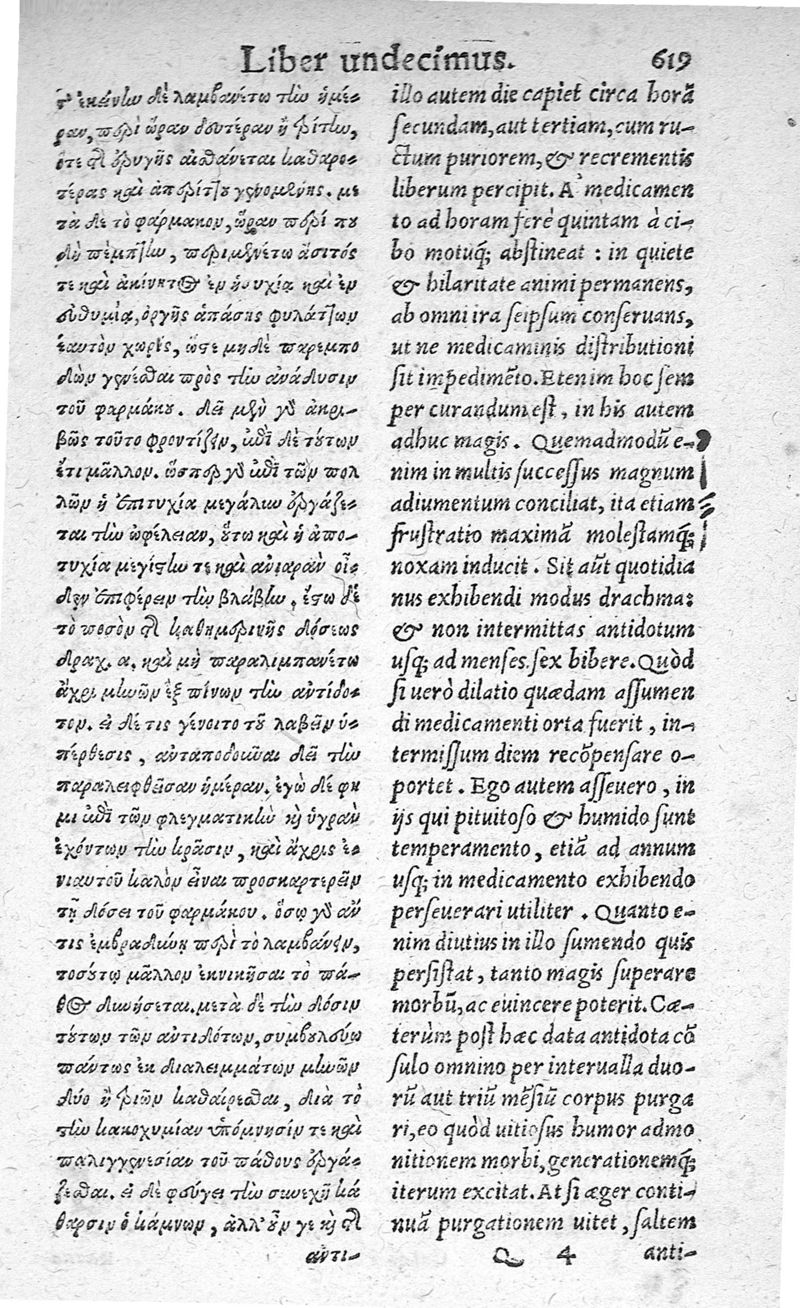 Liber undecimus. 619
ἐκείνην δὲ λαμβανέτω τὴν ἡμέ-
ραν, περὶ ὥραν δευτέραν ἢ τρίτην,
ὅτε τῆς ἐρυγῆς αἰσθάνεται καθαρο-
τέρας καὶ ἀπερίττου γενομένης. με
τὰ δὲ τὸ φάρμακον, ὥραν περί που
δὴ πέμπτην, περιμενέτω ἄσιτός
τε καὶ ἀκίνητος ἐν ἡσυχίᾳ καὶ ἐν
εὐθυμίᾳ, ὀργῆς ἁπάσης φυλάττων
ἑαυτὸν χωρὶς, ὥστε μηδὲ παρεμπο
δὼν γενέσθαι πρὸς τὴν ἀνάδυσιν
τοῦ φαρμάκου. δεῖ μὲν γὰρ ἀκρι-
βῶς τοῦτο φροντίζειν, ἐπὶ δὲ τούτων
ἔτι μᾶλλον. ὥσπερ γὰρ ἐπὶ τῶν πολ
λῶν ἡ ἐπιτυχία μεγάλην ἐργάζε-
ται τὴν ὠφέλειαν, οὕτω καὶ ἡ ἀπο-
τυχία μεγίστην τε καὶ ἀνιαρὰν οἶ-
δεν ἐπιφέρειν τὴν βλάβην. ἔστω δὲ
τὸ ποσὸν τῆς καθημερινῆς δόσεως
δραχ. α. καὶ μὴ παραλιμπανέτω
ἄχρι μηνῶν ἓξ πίνων τὴν ἀντίδο-
τον. εἰ δέ τις γένοιτο τοῦ λαβεῖν ὑ-
πέρθεσις, ἀνταποδοῦναι δεῖ τὴν
παραλειφθεῖσαν ἡμέραν. ἐγὼ δέ φη
μι ἐπὶ τῶν φλεγματικὴν καὶ ὑγρὰν
ἐχόντων τὴν κρᾶσιν, καὶ ἄχρις ἐ-
νιαυτοῦ καλὸν εἶναι προσκαρτερεῖν
τῇ δόσει τοῦ φαρμάκου. ὅσῳ γὰρ ἄν
τις ἐμβραδύνῃ περὶ τὸ λαμβάνειν,
τοσούτῳ μᾶλλον ἐκνικῆσαι τὸ πά-
θος δυνήσεται. μετὰ δὲ τὴν δόσιν
τούτων τῶν ἀντιδότων, συμβουλεύω
πάντως ἐκ διαλειμμάτων μηνῶν
δύο ἢ τριῶν καθαίρεσθαι, διὰ τὸ
τὴν κακοχυμίαν ὑπόμνησίν τε καὶ
παλιγγενεσίαν τοῦ πάθους ἐργά-
ζεσθαι. εἰ δὲ φεύγει τὴν συνεχῆ κά
θαρσιν ὁ κάμνων, ἀλλ' οὖν γε καὶ τῆς
ἀντι-
illo autem die capiet circa horã
secundam, aut tertiam, cum ru-
ctum puriorem, & recrementis
liberum percipit. A medicamen
to ad horam ferè quintam à ci-
bo motuq; abstineat : in quiete
& hilaritate animi permanens,
ab omni ira seipsum conseruans,
ut ne medicaminis distributioni
sit impedimẽto. Etenim hoc sem
per curandum est, in his autem
adhuc magis. Quemadmodũ e-
nim in multis successus magnum
adiumentum conciliat, ita etiam
frustratio maximã molestamq;
noxam inducit. Sit aũt quotidia
nus exhibendi modus drachma:
& non intermittas antidotum
usq; ad menses sex bibere. Quòd
si uerò dilatio quædam assumen
di medicamenti orta fuerit, in-
termissum diem recõpensare o-
portet. Ego autem asseuero, in
ijs qui pituitoso & humido sunt
temperamento, etiã ad annum
usq; in medicamento exhibendo
perseuerari utiliter. Quanto e-
nim diutius in illo sumendo quis
persistat, tanto magis superare
morbũ, ac euincere poterit. Cæ-
terùm post hæc data antidota cõ
sulo omnino per interualla duo-
rũ aut triũ mẽsiũ corpus purga
ri, eo quòd uitiosus humor admo
nitionem morbi, generationemq;
iterum excitat. At si æger conti-
nuã purgationem uitet, saltem
Q 4 anti-